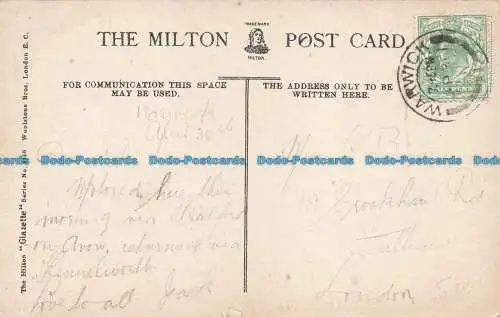 THE MILTON POST CARD.
TRADE MARK
MILTON.
WARWICK
HALFPENNY
FOR COMMUNICATION THIS SPACE
MAY BE USED.
THE ADDRESS ONLY TO BE
WRITTEN HERE.
The Milton "Glazette" Series No. Woolstone Bros, London E. C.
Warwick
April 30
Dodo-Postcards Dodo-Postcards Dodo-Postcards Dodo-Postcards
Motored here this
morning via Stratford
on Avon, returning via
Kennelworth
love to all Jack
Brookham Rd
Fulham
London SW